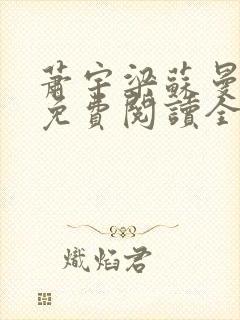 蕭宇梁蘇曼
免費閱讀全
熾焰君